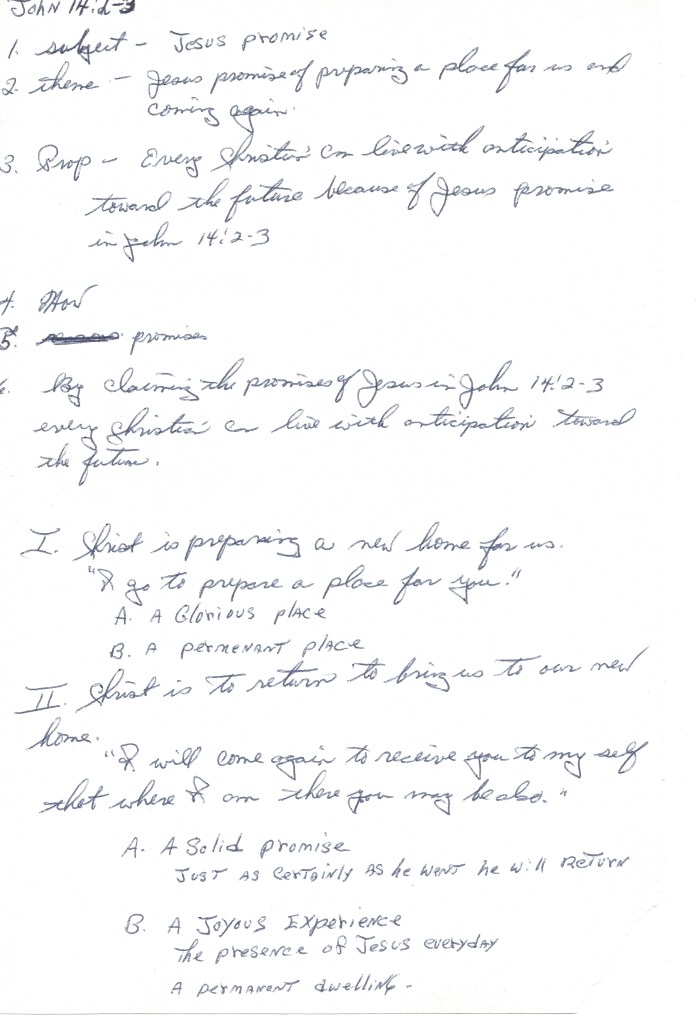 John 14:2-3
1. subject - Jesus promise
2. theme - Jesus promise of preparing a place for us and
coming again.
3. Prop - Every Christian can live with anticipation
toward the future because of Jesus promise
in John 14:2-3
4. How
5. promises
6. By claiming the promises of Jesus in John 14:2-3
every Christian can live with anticipation toward
the future.
I. Christ is preparing a new home for us.
"I go to prepare a place for you."
A. A Glorious place
B. A permenant place
II. Christ is to return to bring us to our new
home.
"I will come again to receive you to my self
that where I am there you may be also."
A. A Solid promise
Just as certainly as he went he will return
B. A Joyous Experience
The presence of Jesus everyday
A permanent dwelling -